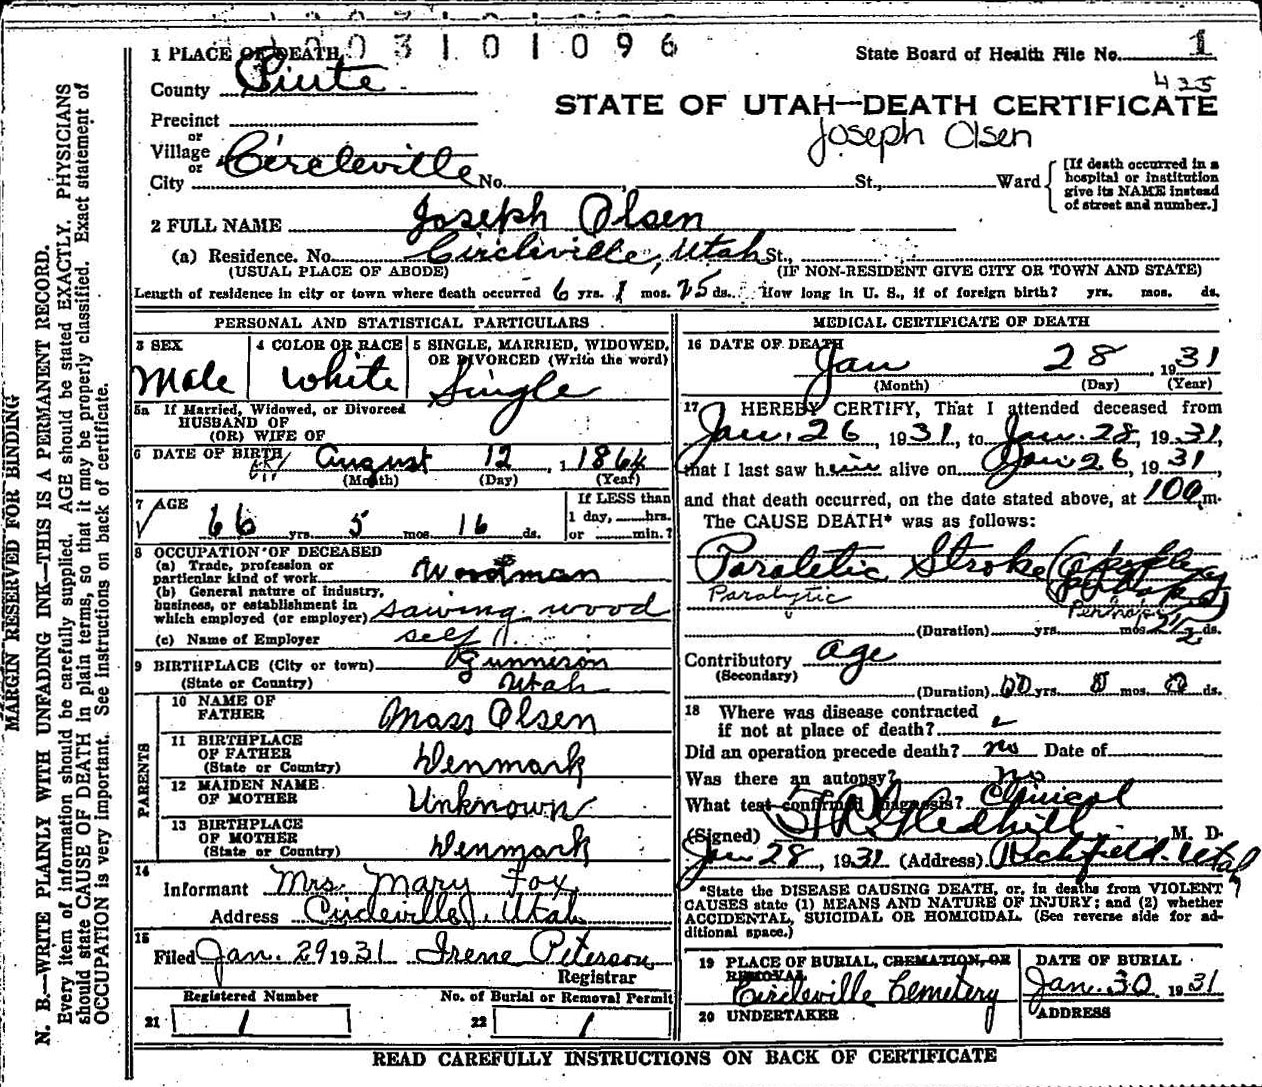 0 0 3 1 0 1 0 9 6
1 PLACE OF DEATH
State Board of Health File No. 1
County Piute
435
STATE OF UTAH—DEATH CERTIFICATE
Joseph Olsen
Precinct
or
Village
or
City Circleville No. , St., Ward
[If death occurred in a
hospital or institution
give its NAME instead
of street and number.]
2 FULL NAME Joseph Olsen
(a) Residence. No. Circleville, Utah St.,
(USUAL PLACE OF ABODE) (IF NON-RESIDENT GIVE CITY OR TOWN AND STATE)
Length of residence in city or town where death occurred 6 yrs. 1 mos. 25 ds. How long in U. S., if of foreign birth? yrs. mos. ds.
PERSONAL AND STATISTICAL PARTICULARS
3 SEX
Male
4 COLOR OR RACE
White
5 SINGLE, MARRIED, WIDOWED,
OR DIVORCED (Write the word)
Single
5a If Married, Widowed, or Divorced
HUSBAND OF
(OR) WIFE OF
6 DATE OF BIRTH August 12, 1 1864
(Month) (Day) (Year)
7 AGE
66 yrs. 5 mos. 16 ds.
If LESS than
1 day, hrs.
or min.?
8 OCCUPATION OF DECEASED
(a) Trade, profession or
particular kind of work Woodman
(b) General nature of industry,
business, or establishment in
which employed (or employer) sawing wood
(c) Name of Employer self
9 BIRTHPLACE (City or town) Gunnison
(State or Country) Utah
PARENTS
10 NAME OF
FATHER Mass Olsen
11 BIRTHPLACE
OF FATHER
(State or Country) Denmark
12 MAIDEN NAME
OF MOTHER Unknown
13 BIRTHPLACE
OF MOTHER
(State or Country) Denmark
14
Informant Mrs. Mary Fox
Address Circleville, Utah
15
Filed Jan. 29 1931 Irene Peterson
Registrar
Registered Number
21 1
No. of Burial or Removal Permit
22 1
MEDICAL CERTIFICATE OF DEATH
16 DATE OF DEATH
Jan 28, 1931
(Month) (Day) (Year)
17 I HEREBY CERTIFY, That I attended deceased from
Jan. 26, 1931, to Jan. 28, 1931,
that I last saw him alive on Jan 26, 1931,
and that death occurred, on the date stated above, at m.
The CAUSE DEATH* was as follows:
Paraletic Stroke (Apoplexy
Paralytic
(Duration) yrs. mos. 2 1/2 ds.
Contributory age
(Secondary)
(Duration) yrs. mos. ds.
18 Where was disease contracted
if not at place of death?
Did an operation precede death? no Date of
Was there an autopsy? no
What test confirmed diagnosis? Clinical
(Signed) Gledhill, M. D.
Jan 28, 1931 (Address) Richfield, Utah
*State the DISEASE CAUSING DEATH, or, in deaths from VIOLENT
CAUSES state (1) MEANS AND NATURE OF INJURY; and (2) whether
ACCIDENTAL, SUICIDAL OR HOMICIDAL. (See reverse side for ad-
ditional space.)
19 PLACE OF BURIAL, CREMATION, OR
REMOVAL
Circleville Cemetery
DATE OF BURIAL
Jan. 30, 1931
20 UNDERTAKER
ADDRESS
READ CAREFULLY INSTRUCTIONS ON BACK OF CERTIFICATE
MARGIN RESERVED FOR BINDING
N. B.—WRITE PLAINLY WITH UNFADING INK—THIS IS A PERMANENT RECORD.
Every item of information should be carefully supplied. AGE should be stated EXACTLY. PHYSICIANS
should state CAUSE OF DEATH in plain terms, so that it may be properly classified. Exact statement of
OCCUPATION is very important. See instructions on back of certificate.